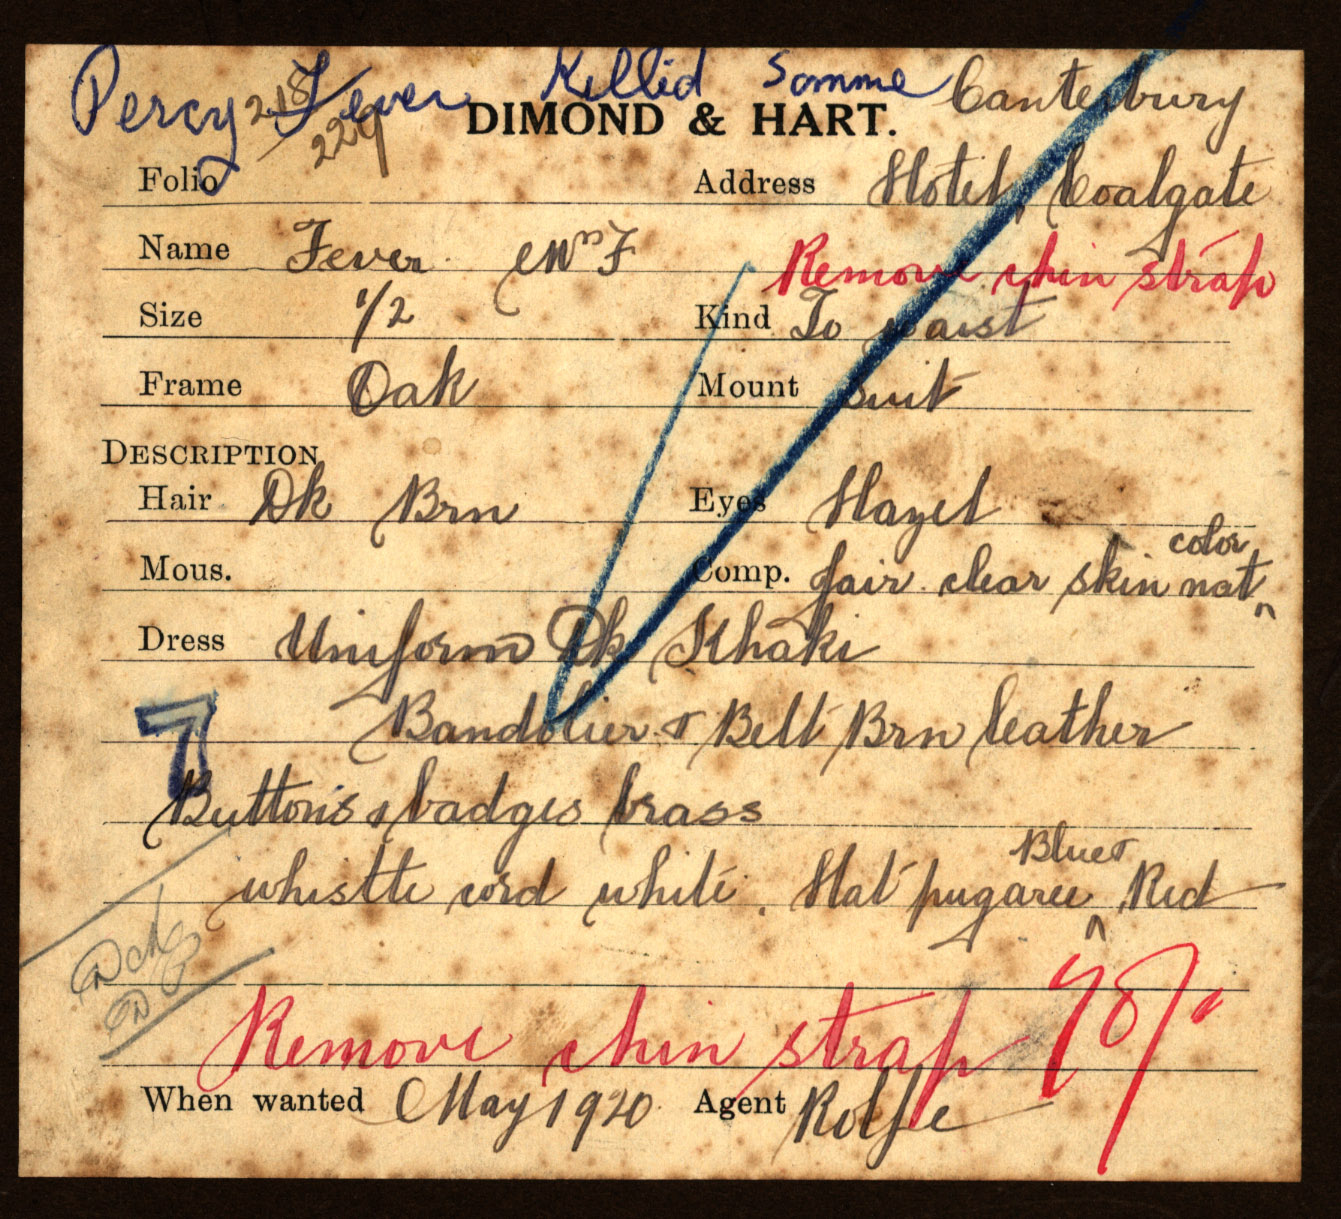 Percy Fever Killed Somme
218
229
DIMOND & HART.
Canterbury
Folio Address Hotel, Coalgate
Name Fever Mrs F
Remove chin strap
Size 1/2 Kind To waist
Frame Oak Mount Suit
DESCRIPTION
Hair Dk Brn Eyes Hazel
color
Mous. Comp. fair clear skin nat ^
Dress Uniform Dk Khaki
7
Bandolier & Belt Brn leather
Buttons & badges brass
Blue &
whistle cord white. Hat pugaree ^ Red
Remove chin strap
When wanted May 1920 Agent Rolfe